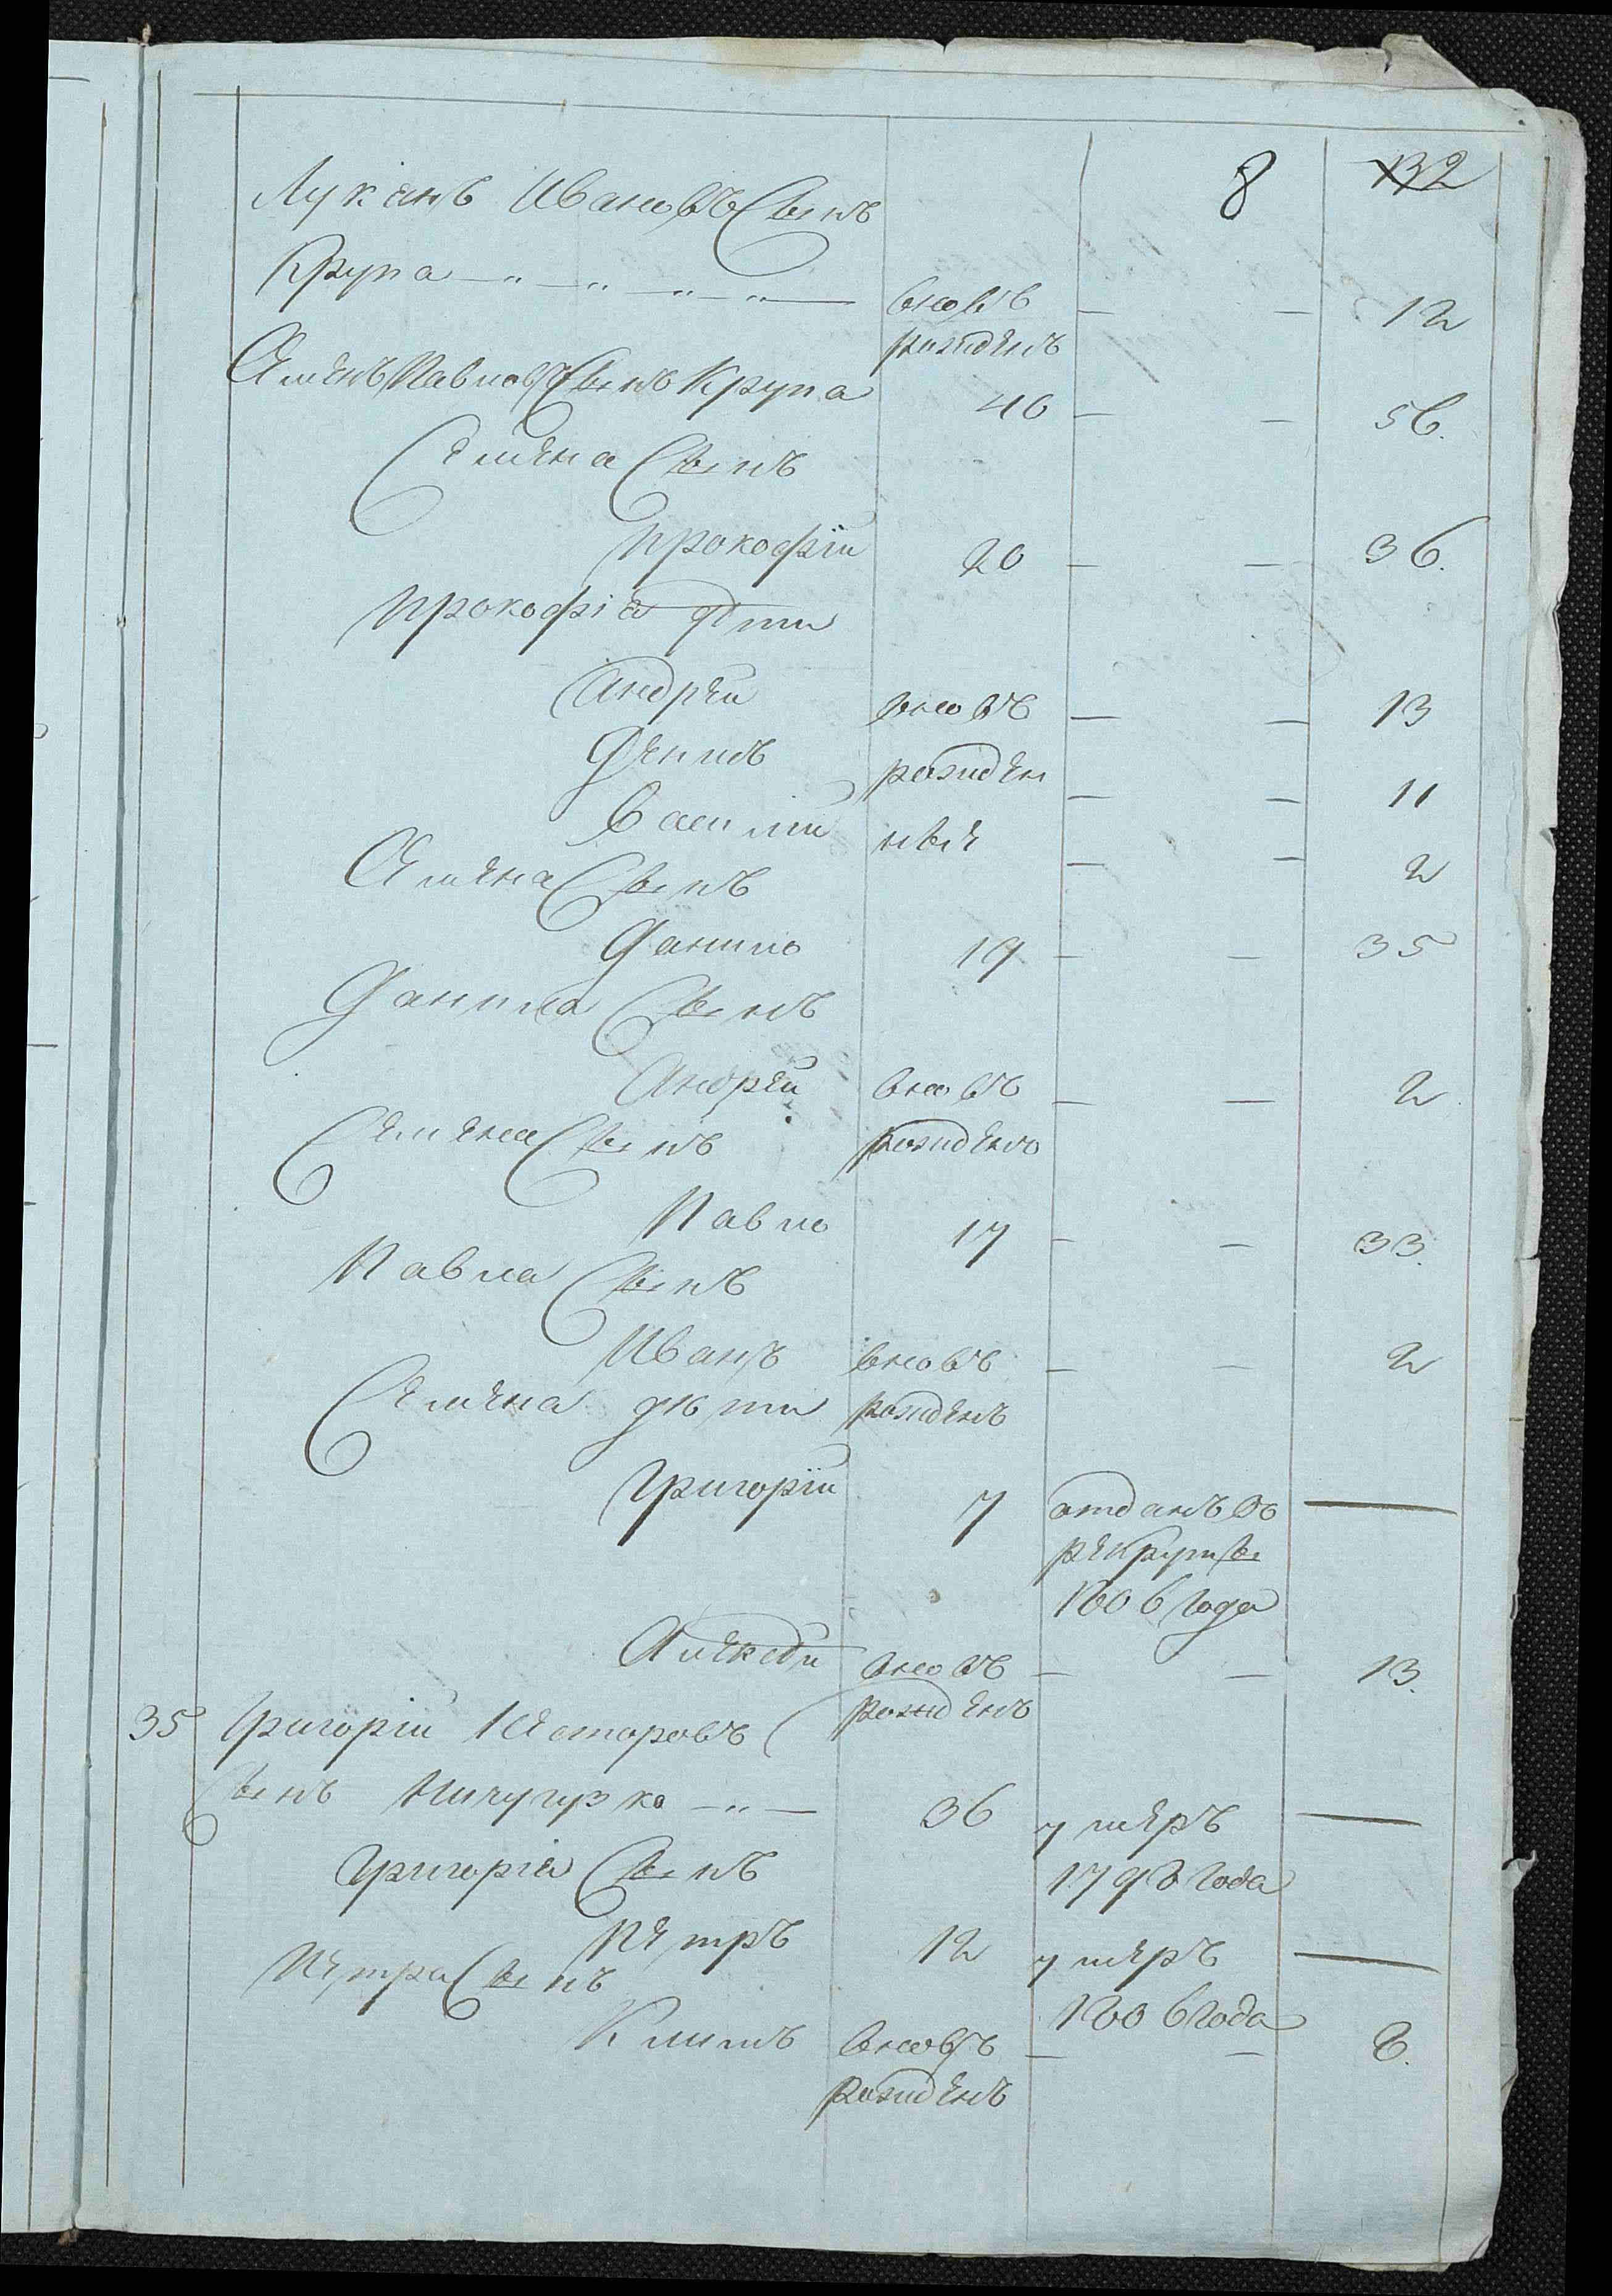 8 132
Лукіянъ Ивановъ Сынъ
Крупа — „ — „ — „ — „ — вновь — — 12
рожденъ
Семенъ Павловъ Сынъ Крупа 40 — — 56.
Семена Сынъ
Прокофій 20 — — 36.
Прокофія дѣти
Андрей вновь — — 13
Денисъ рожден — — 11
Василий ныя — — 2
Семена Сынъ
Данило 19 — — 35
Данила Сынъ
Андрей вновь — — 2
Семена Сынъ рожденъ
Павло 17 — — 33.
Павла Сынъ
Иванъ вновь — — 2
Семена дѣти рожденъ
Григорій 7 отданъ въ —
рекруты
1806 года
Алексѣй вновь — — 13.
рожденъ
35 Григорій Несторовъ
Сынъ — „ — 36 умеръ —
Григорія Сынъ 1798 года
Петръ 12 умеръ —
Петра Сынъ 1806 года
Климъ вновь — — 8.
рожденъ